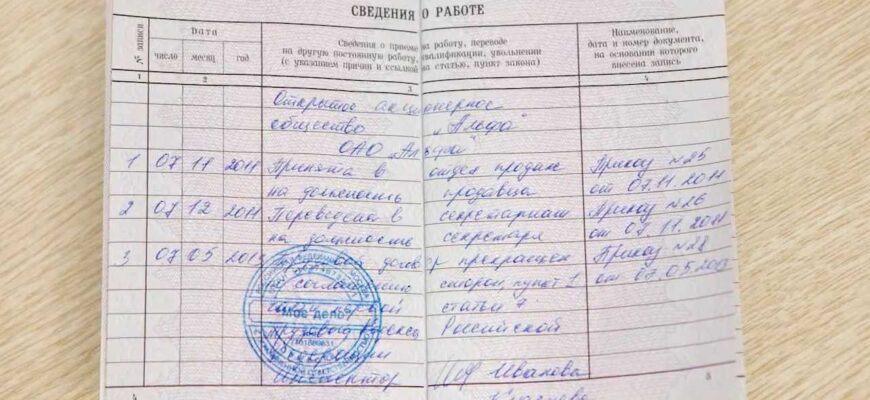 СВЕДЕНИЯ О РАБОТЕ
№ записи
Дата
число месяц год
Сведения о приеме на работу, переводе
на другую постоянную работу, квалификации, увольнении
(с указанием причин и ссылкой на статью, пункт закона)
Наименование,
дата и номер документа,
на основании которого
внесена запись
1 2 3 4
Открытое акционерное
общество "Альфа"
ОАО "Альфа"
1 07 11 2011 Принята в отдел продаж Приказ №25
на должность продавца от 07.11.2011
2 07 12 2011 Переведена в секретариат Приказ №26
на должность секретаря от 07.11.2011
3 07 05 договор прекращен Приказ №28
соглашению сторон, пункт 1 от 07.05.2013
статьи 7
Трудового кодекса Российской
Федерации
МОЕ ДЕЛО
Инспектор Иванова
4
5